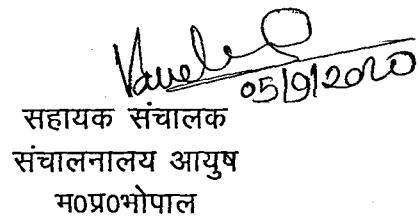 05/9/2020
सहायक संचालक
संचालनालय आयुष
म0प्र0भोपाल